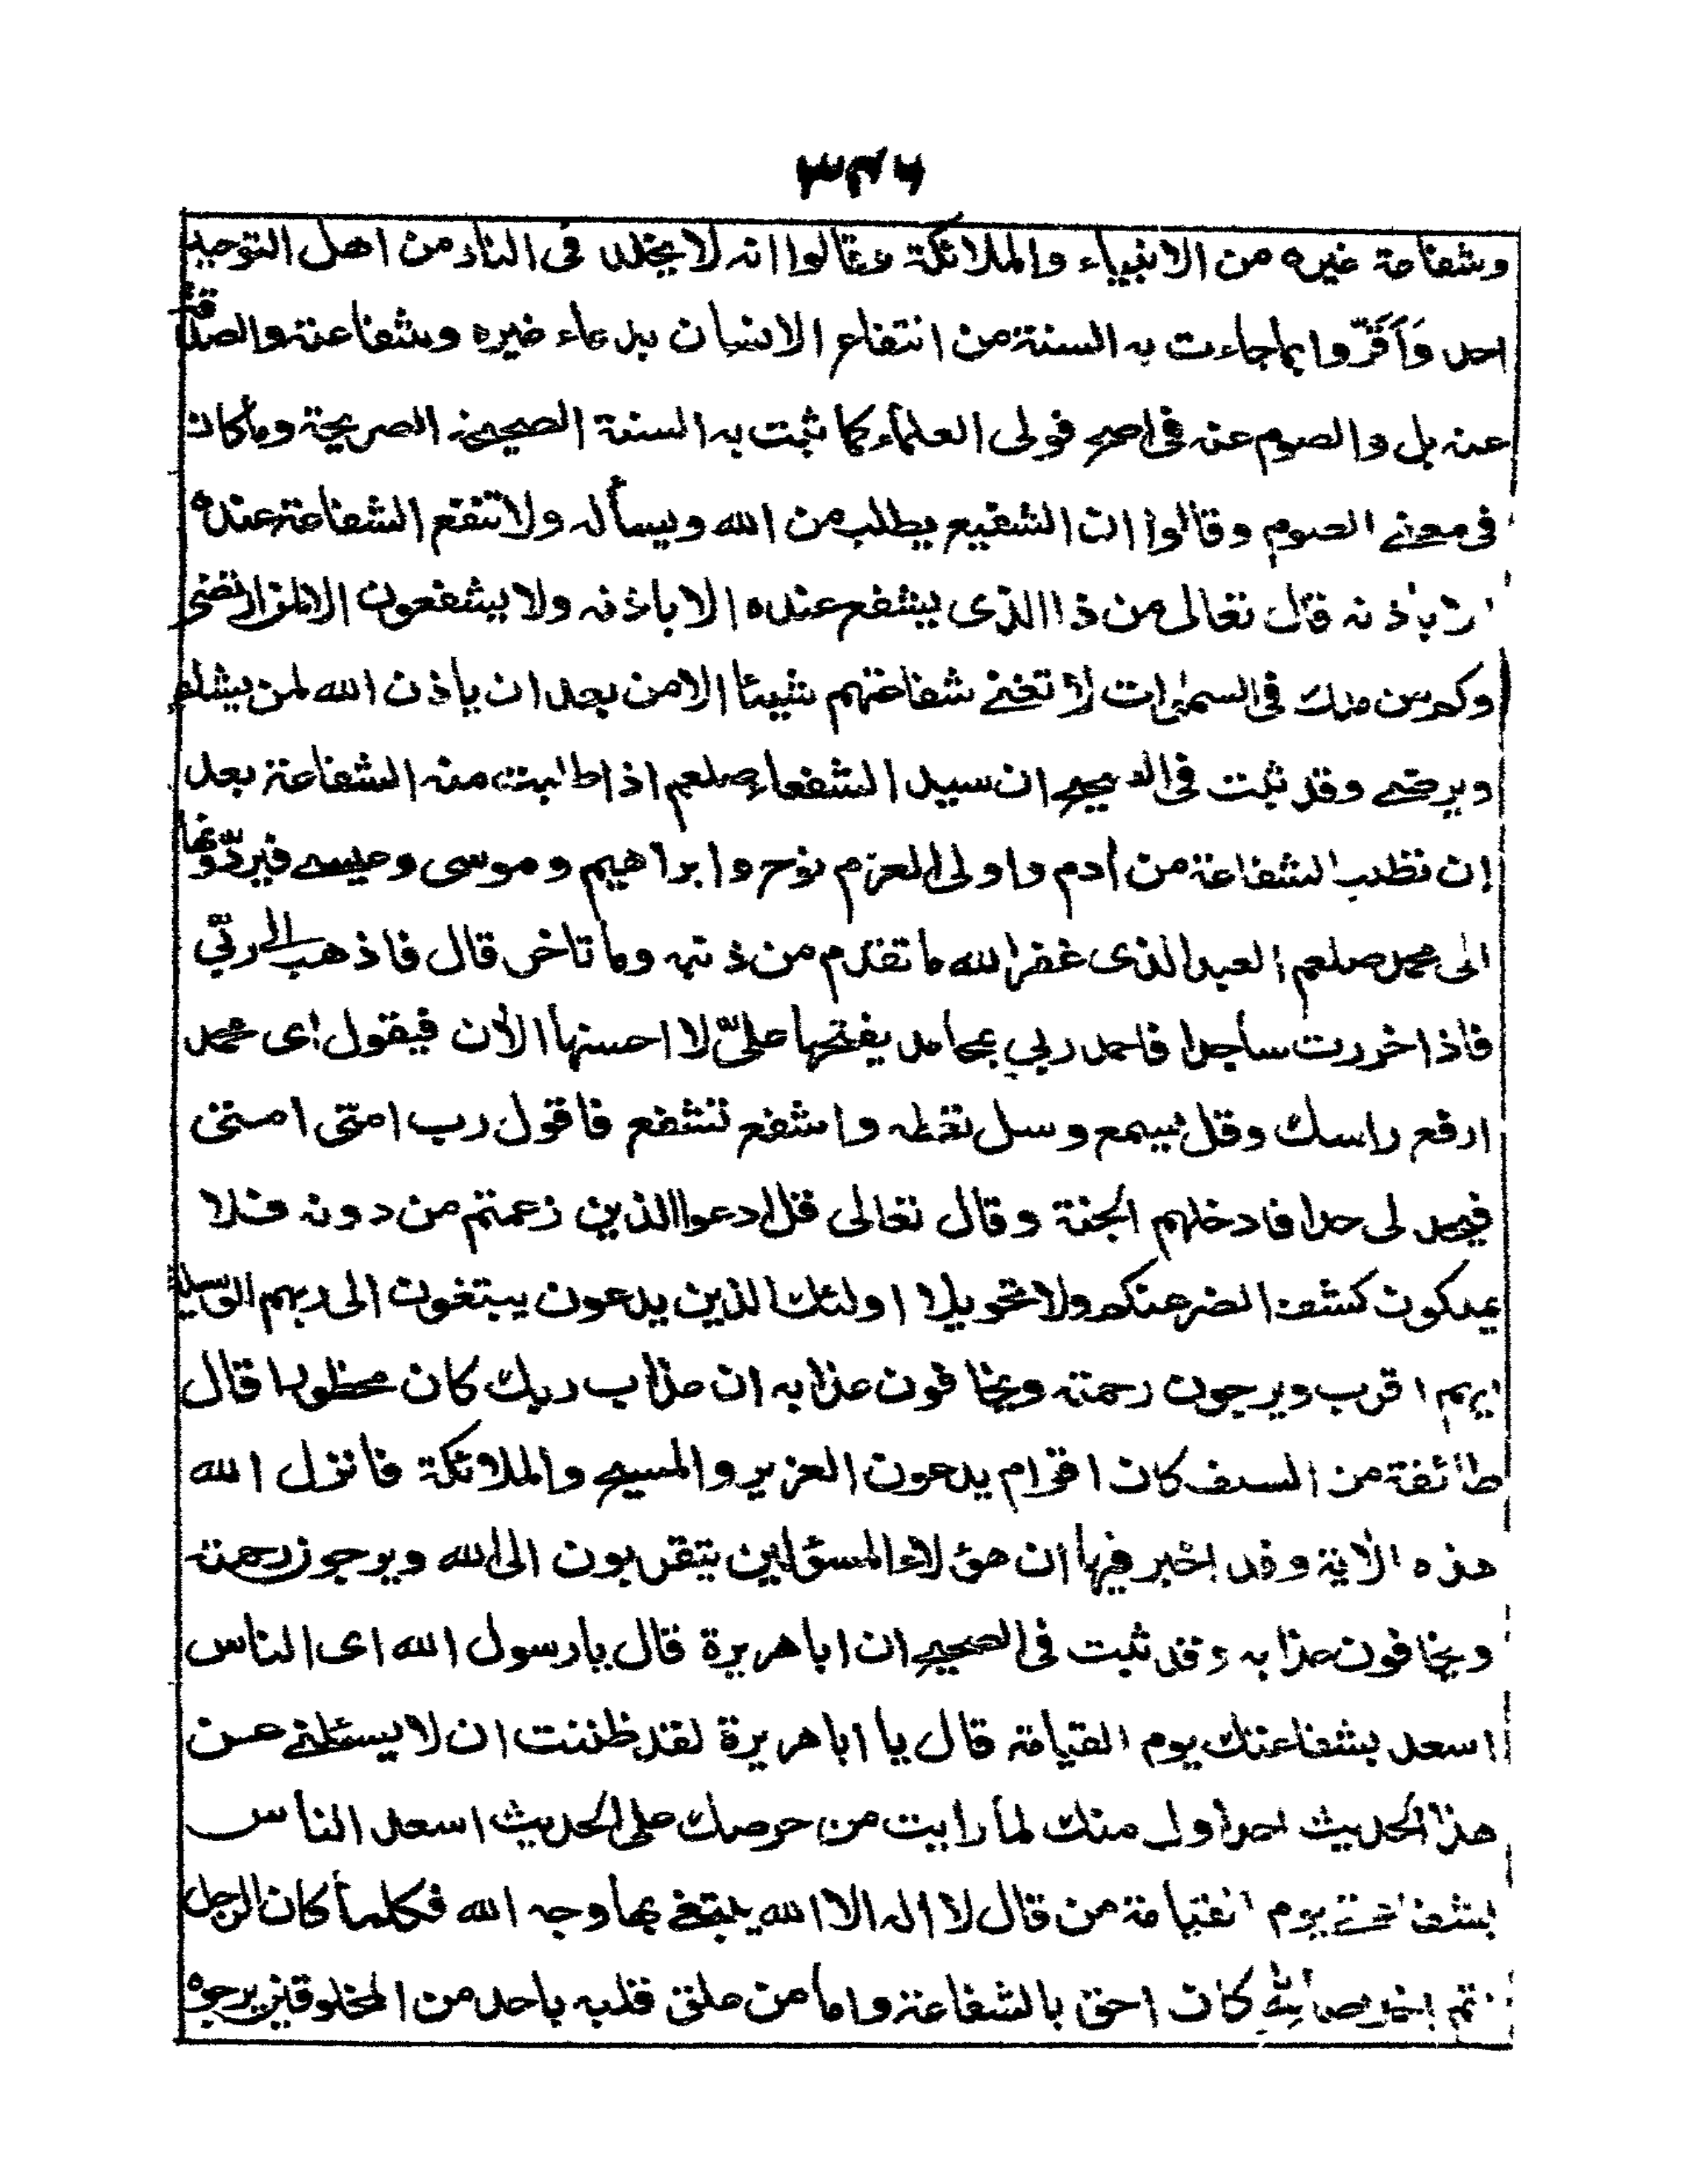 ٣٤٦
وشفاعة غيره من الانبياء والملائكة وقالوا انه لا يخلد فى النار من اهل التوحيد
احد وَاَقَرّوا بما جاءت به السنة من انتفاع الانسان بدعاء غيره وشفاعته والصدقة
عنه بل والصوم عنه فى اصح قولى العلماء كما ثبت به السنة الصحيحة الصريحة وما كان
فى معنے الصوم وقالوا ان الشفيع يطلب من الله ويسأله ولا تنفع الشفاعة عنده
الا باذنه قال تعالى من ذا الذى يشفع عنده الا باذنه ولا يشفعون الا لمن ارتضى
وكم من ملك فى السمٰوات لا تغنے شفاعتهم شيئا الا من بعد ان ياذن الله لمن يشاء
ويرضے وقد ثبت فى الصحيح ان سيد الشفعاء صلعم اذا طلبت منه الشفاعة بعد
ان تطلب الشفاعة من آدم واولى العزم نوح وابراهيم وموسى وعيسے فيردّونها
الى محمد صلعم العبد الذى غفر الله ما تقدم من ذنبه وما تاخر قال فاذهب الى ربّي
فاذا خررت ساجدا فاحمد ربي بمحامد يفتحها علىّ لا احسنها الأن فيقول اى محمد
ارفع راسك وقل يسمع وسل تعطه واشفع تشفع فاقول رب امتى امتى
فيحد لى حدا فادخلهم الجنة وقال تعالى قل ادعوا الذين زعمتم من دونه فلا
يملكون كشف الضر عنكم ولا تحويلا اولئك الذين يدعون يبتغون الى ربهم الوسيلة
ايهم اقرب ويرجون رحمته ويخافون عذابه ان عذاب ربك كان محظورا قال
طائفة من السلف كان اقوام يدعون العزير والمسيح والملائكة فانزل الله
هذه الاية وقد اخبر فيها ان هؤلاء المسؤلين يتقربون الى الله ويرجون رحمته
ويخافون عذابه وقد ثبت فى الصحيح ان ابا هريرة قال يا رسول الله اى الناس
اسعد بشفاعتك يوم القيامة قال يا ابا هريرة لقد ظننت ان لا يسئلنے عن
هذا الحديث احد اول منك لما رايت من حرصك على الحديث اسعد الناس
بشفاعتے يوم القيامة من قال لا اله الا الله يبتغے بها وجه الله فكلما كان الرجل
اتم اخلاصا لله كان احق بالشفاعة واما من علق قلبه باحد من المخلوقين يرجوه